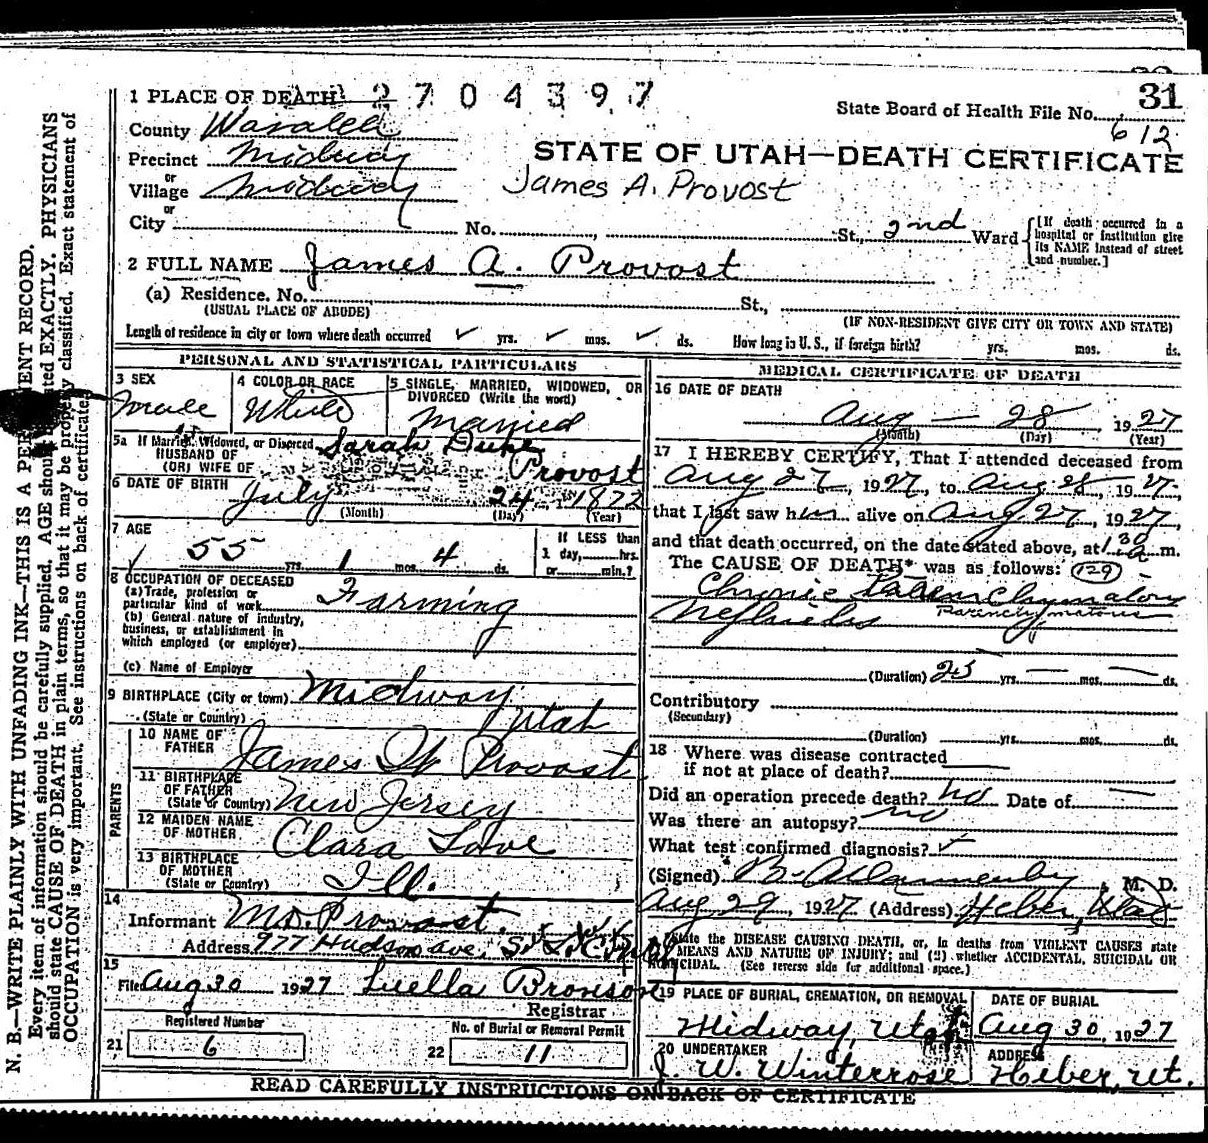 31
1 PLACE OF DEATH 2704397
State Board of Health File No. 612
County Wasatch
STATE OF UTAH—DEATH CERTIFICATE
Precinct Midway
James A. Provost
or
Village Midway
or
City No. , St., 2nd Ward
[If death occurred in a
hospital or institution give
its NAME instead of street
and number.]
2 FULL NAME James A. Provost
(a) Residence. No. St.,
(USUAL PLACE OF ABODE) (IF NON-RESIDENT GIVE CITY OR TOWN AND STATE)
Length of residence in city or town where death occurred ✓ yrs. ✓ mos. ✓ ds. How long in U. S., if foreign birth? yrs. mos. ds.
PERSONAL AND STATISTICAL PARTICULARS
3 SEX
Male
4 COLOR OR RACE
White
5 SINGLE, MARRIED, WIDOWED, OR
DIVORCED (Write the word)
Married
5a If Married, Widowed, or Divorced
HUSBAND OF
(OR) WIFE OF
Sarah Duke
Provost
6 DATE OF BIRTH July 24 1872
(Month) (Day) (Year)
7 AGE
55 yrs. 1 mos. 4 ds.
If LESS than
1 day, hrs.
or min.?
8 OCCUPATION OF DECEASED
(a) Trade, profession or
particular kind of work Farming
(b) General nature of industry,
business, or establishment in
which employed (or employer)
(c) Name of Employer
9 BIRTHPLACE (City or town) Midway
(State or Country) Utah
PARENTS
10 NAME OF
FATHER James W Provost
11 BIRTHPLACE
OF FATHER
(State or Country) New Jersey
12 MAIDEN NAME
OF MOTHER Clara Love
13 BIRTHPLACE
OF MOTHER
(State or Country) Ill.
14
Informant M.D. Provost.
Address 977 Hudson ave,
15
Filed Aug 30 1927 Luella Bronson
Registrar
Registered Number
21 6
No. of Burial or Removal Permit
22 11
MEDICAL CERTIFICATE OF DEATH
16 DATE OF DEATH
Aug — 28 1927
(Month) (Day) (Year)
17 I HEREBY CERTIFY, That I attended deceased from
Aug 27, 1927, to Aug 28, 1927.
that I last saw him alive on Aug 27, 1927,
and that death occurred, on the date stated above, at 1 30 a m.
The CAUSE OF DEATH* was as follows: 129
Chronic Parenchymatory
Parenchymatous
Nephritis
(Duration) 25 yrs. — mos. — ds.
Contributory
(Secondary)
(Duration) yrs. mos. ds.
18 Where was disease contracted
if not at place of death?
Did an operation precede death? no Date of —
Was there an autopsy? no
What test confirmed diagnosis? ✓
(Signed) , M. D.
Aug 29, 1927 (Address) Heber, Utah
State the DISEASE CAUSING DEATH, or, in deaths from VIOLENT CAUSES state
MEANS AND NATURE OF INJURY; and (2) whether ACCIDENTAL, SUICIDAL OR
HOMICIDAL. (See reverse side for additional space.)
19 PLACE OF BURIAL, CREMATION, OR REMOVAL
Midway, Utah
DATE OF BURIAL
Aug 30, 1927
20 UNDERTAKER
J. W. Winterrose
ADDRESS
Heber, Ut.
READ CAREFULLY INSTRUCTIONS ON BACK OF CERTIFICATE
N. B.—WRITE PLAINLY WITH UNFADING INK—THIS IS A PERMANENT RECORD.
Every item of information should be carefully supplied. AGE should be stated EXACTLY. PHYSICIANS
should state CAUSE OF DEATH in plain terms, so that it may be properly classified. Exact statement of
OCCUPATION is very important. See instructions on back of certificate.